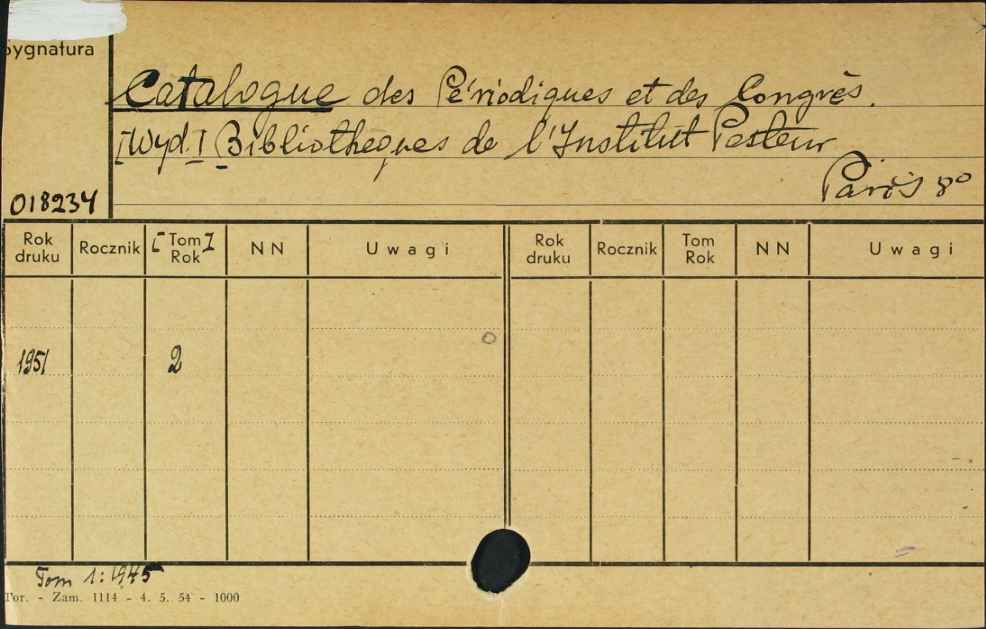 Sygnatura
Catalogue des Périodiques et des Congrès.
[Wyd.] Bibliotheques de l'Institut Pasteur
Paris 8°
018234
Rok druku Rocznik [Tom] Rok NN Uwagi Rok druku Rocznik Tom Rok NN Uwagi
1951 2
Tom 1: 1945
Tor. - Zam. 1114 - 4. 5. 54 - 1000